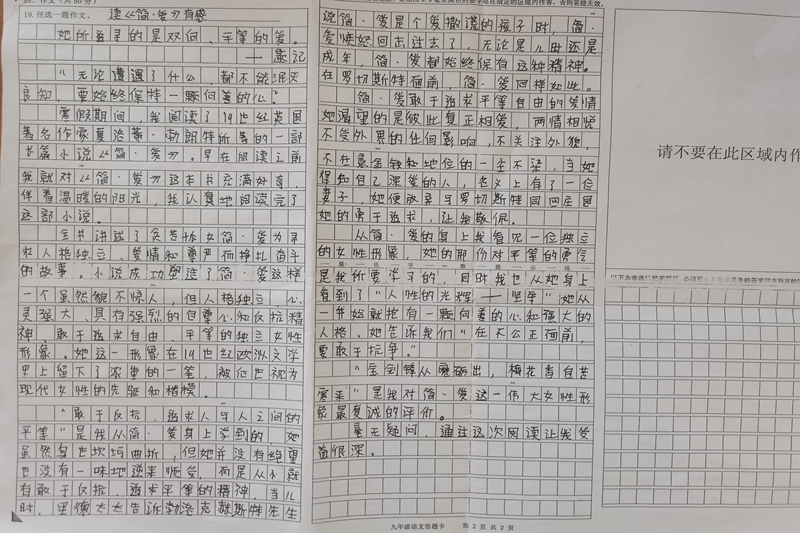 四、作文（共50分）
19. 任选一题作文。 读《简·爱》有感
她所追寻的是双向、平等的爱。
——题记
“无论遭遇了什么，都不能泯灭
良知，要始终保持一颗向善的心。”
寒假期间，我阅读了19世纪英国
著名作家夏洛蒂·勃朗特所著的一部
长篇小说《简·爱》。早在阅读之前
我就对《简·爱》这本书充满好奇，
伴着温暖的阳光，我认真地阅读完了
这部小说。
全书讲述了贫苦孤女简·爱为寻
求人格独立、爱情和尊严而挣扎奋斗
的故事。小说成功塑造了简·爱这样
一个虽然貌不惊人，但人格独立，心
灵强大，具有强烈的自尊心和反抗精
神，敢于追求自由，平等的独立女性
形象。她这一形象在19世纪欧洲文学
史上留下了浓重的一笔，被后世视为
现代女性的先驱和楷模。
“敢于反抗，追求人与人之间的
平等”是我从简·爱身上学到的，她
虽然身世坎坷曲折，但她并没有绝望
也没有一味地逆来顺受，而是从小就
有敢于反抗，追求平等的精神，当儿
时，里德太太告诉勃洛克赫斯特先生
说简·爱是个爱撒谎的孩子时，简·
爱愤怒回击过去了，无论是儿时还是
成年，简·爱都始终保有这种精神。
在罗切斯特面前，简·爱同样如此。
简·爱敢于追求平等自由的爱情
她渴望的是彼此真正相爱，两情相悦
不受外界的任何影响，不关注外貌，
不在意金钱和地位的一尘不染，当她
得知自己深爱的人，名义上有了一位
妻子，她便放弃与罗切斯特同回庄园
她的勇于追求，让我敬佩。
从简·爱的身上我看见一位独立
的女性形象，她的那份对平等的勇气
是我所要学习的，同时我也从她身上
看到了“人性的光辉——坚毅”她从
一开始就抱有一颗向善的心和强大的
人格，她告诉我们“在不公正面前，
要敢于抗争。”
“宝剑锋从磨砺出，梅花香自苦
寒来”是我对简·爱这一伟大女性形
象最真诚的评价。
毫无疑问，通过这次阅读让我受
益很深。
请不要在此区域内作
九年级语文答题卡 第 2 页 共 2 页